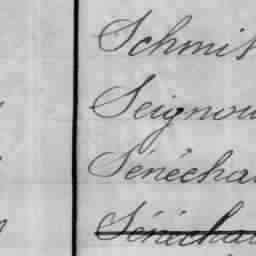 Schmis
Seignou
Sénécha
Sénécha